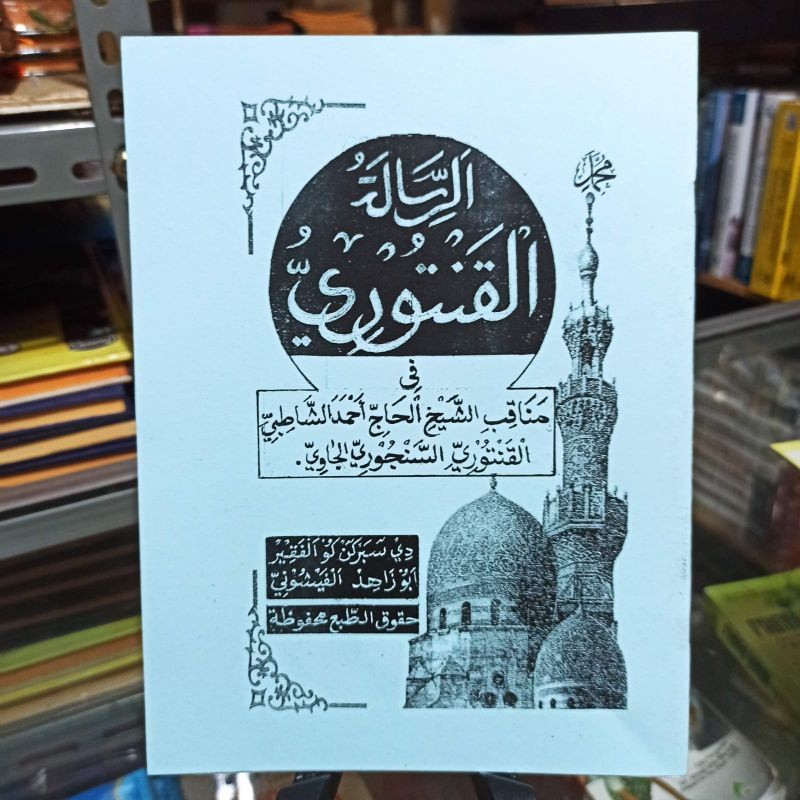 محمد
الرِّسَالَةُ
الْقَنْتُوْرِيُّ
فِي
مَنَاقِبِ الشَّيْخِ الْحَاجِّ أَحْمَدَ الشَّاطِبِيِّ
الْقَنْتُوْرِيِّ السَّنْجُوْرِيِّ الْجَاوِيِّ.
دِيْ سَبَرْكَنْ كَوْ الْفَقِيْر
اَبُوْ زَاهِدْ الْفَيْشُوْنِيّ
حقوق الطبع محفوظة